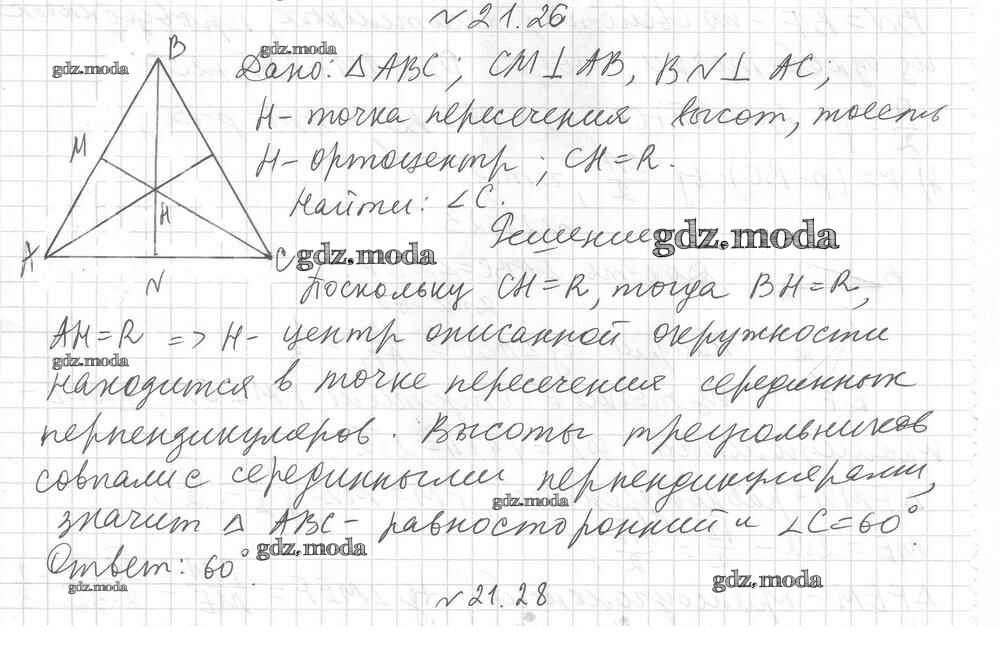 № 21.26
gdz.moda
gdz.moda
B
M
H
A
C
N
Дано: △ABC; CM⊥AB, BN⊥AC;
H- точка пересечения высот, тоесть
H- ортоцентр; CH=R.
Найти: ∠C.
Решение
gdz.moda
gdz.moda
Поскольку CH=R, тогда BH=R,
AH=R => H- центр описанной окружности
gdz.moda
находится в точке пересечения серединных
перпендикуляров. Высоты треугольников
совпали с серединными перпендикулярами,
gdz.moda
значит △ ABC- равносторонний и ∠C=60°.
gdz.moda
Ответ: 60°.
gdz.moda
gdz.moda
№ 21.28